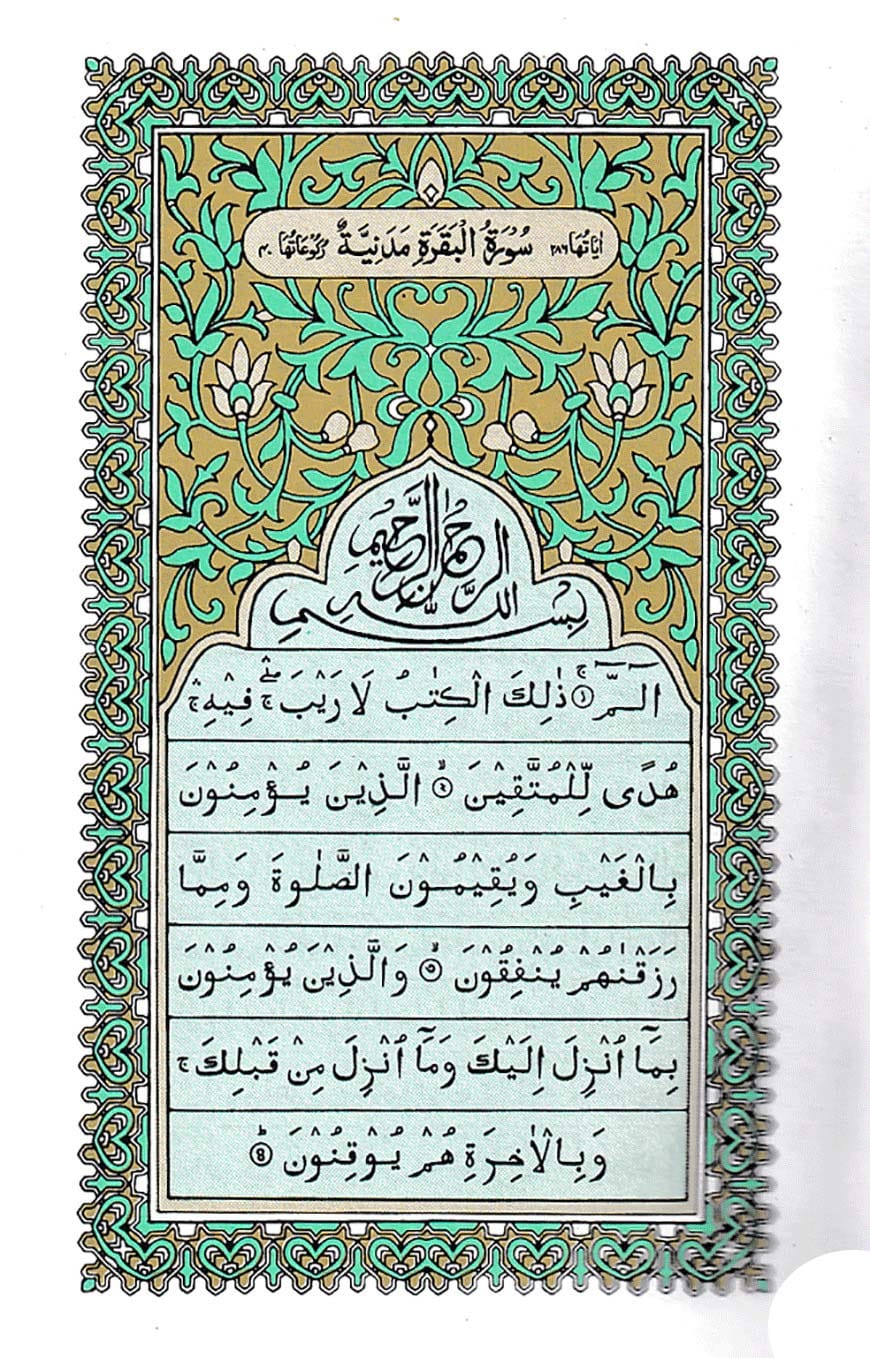 اٰيَاتُهَا ٢٨٦ سُوْرَةُ الْبَقَرَةِ مَدَنِيَّةٌ رُكُوْعَاتُهَا ٤٠
بِسْمِ اللّٰهِ الرَّحْمٰنِ الرَّحِيْمِ
الٓمّٓ ۚ ۝١ ذٰلِكَ الْكِتٰبُ لَا رَيْبَ ۛۖۚ فِيْهِ ۛۚ
هُدًى لِّلْمُتَّقِيْنَ ۙ ۝٢ الَّذِيْنَ يُؤْمِنُوْنَ
بِالْغَيْبِ وَيُقِيْمُوْنَ الصَّلٰوةَ وَمِمَّا
رَزَقْنٰهُمْ يُنْفِقُوْنَ ۙ ۝٣ وَالَّذِيْنَ يُؤْمِنُوْنَ
بِمَآ اُنْزِلَ اِلَيْكَ وَمَآ اُنْزِلَ مِنْ قَبْلِكَ ۚ
وَبِالْاٰخِرَةِ هُمْ يُوْقِنُوْنَ ؕ ۝٤